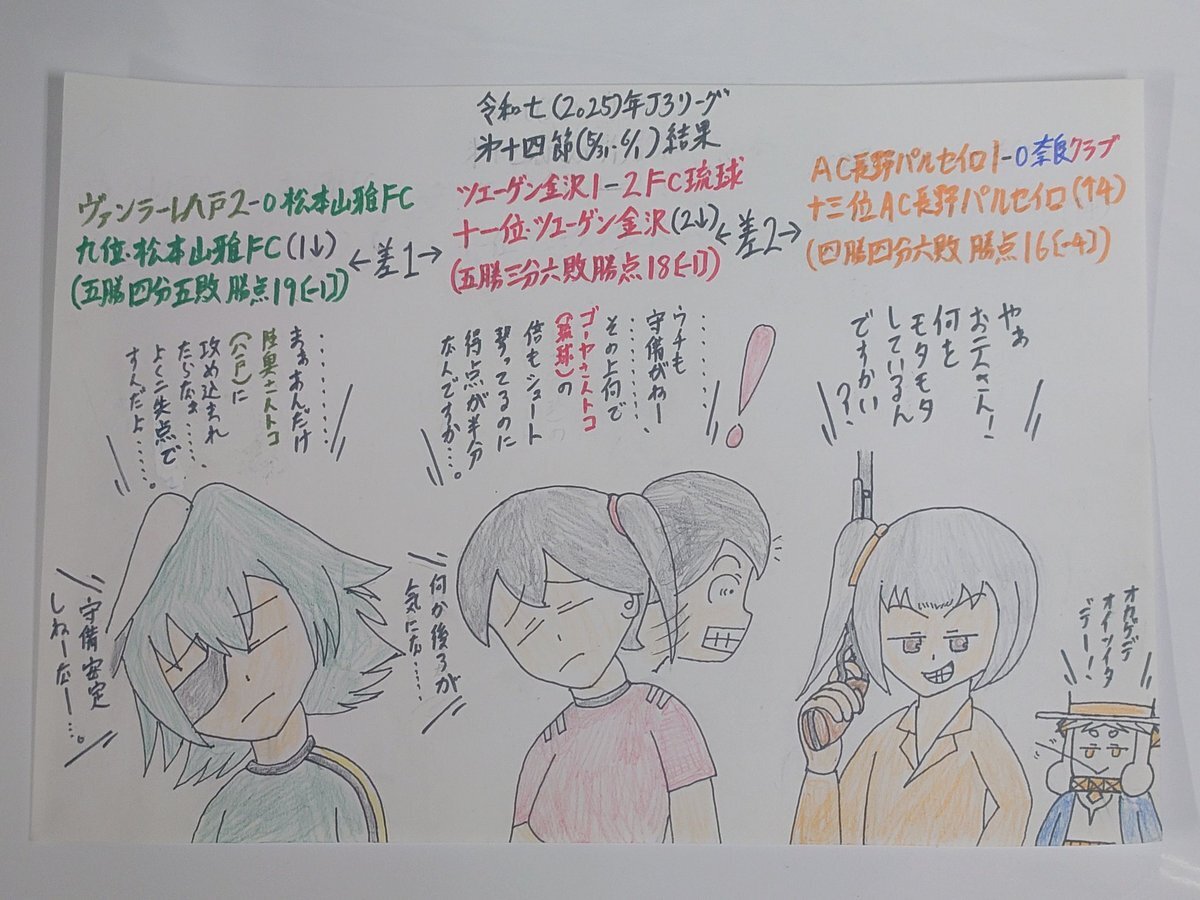 令和七(2025)年J3リーグ
第十四節(5/31·6/1)結果
ヴァンラーレ八戸2-0松本山雅FC
九位·松本山雅FC(1↓)
(五勝四分五敗 勝点19[-1])
←差1→
ツエーゲン金沢1-2FC琉球
十一位·ツエーゲン金沢(2↓)
(五勝三分六敗 勝点18[-1])
←差2→
AC長野パルセイロ1-0奈良クラブ
十三位AC長野パルセイロ(↑4)
(四勝四分六敗 勝点16[-4])
やぁ
お二人さん!
何を
モタモタ
しているん
ですかい
?
!
………
ウチも
守備がねー
………
その上何で
ゴーヤ十一人トコ
(琉球)の
倍もシュート
撃ってるのに
得点が半分
なんですか…。
………
まぁあんだけ
陸奥十一人トコ
(八戸)に
攻め込まれ
たらなぁ……
よく二失点で
すんだよ……。
守備安定
しねーなー…。
何か後ろが
気にな……
オカゲデ
オイツイタ
デー!